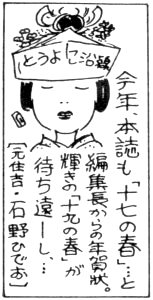 とうよこ沿線
今年、本誌も「十七の春」…と
編集長からの年賀状。
輝きの「十九の春」が
待ち遠ーし、…
[元住吉・石野ひでお]